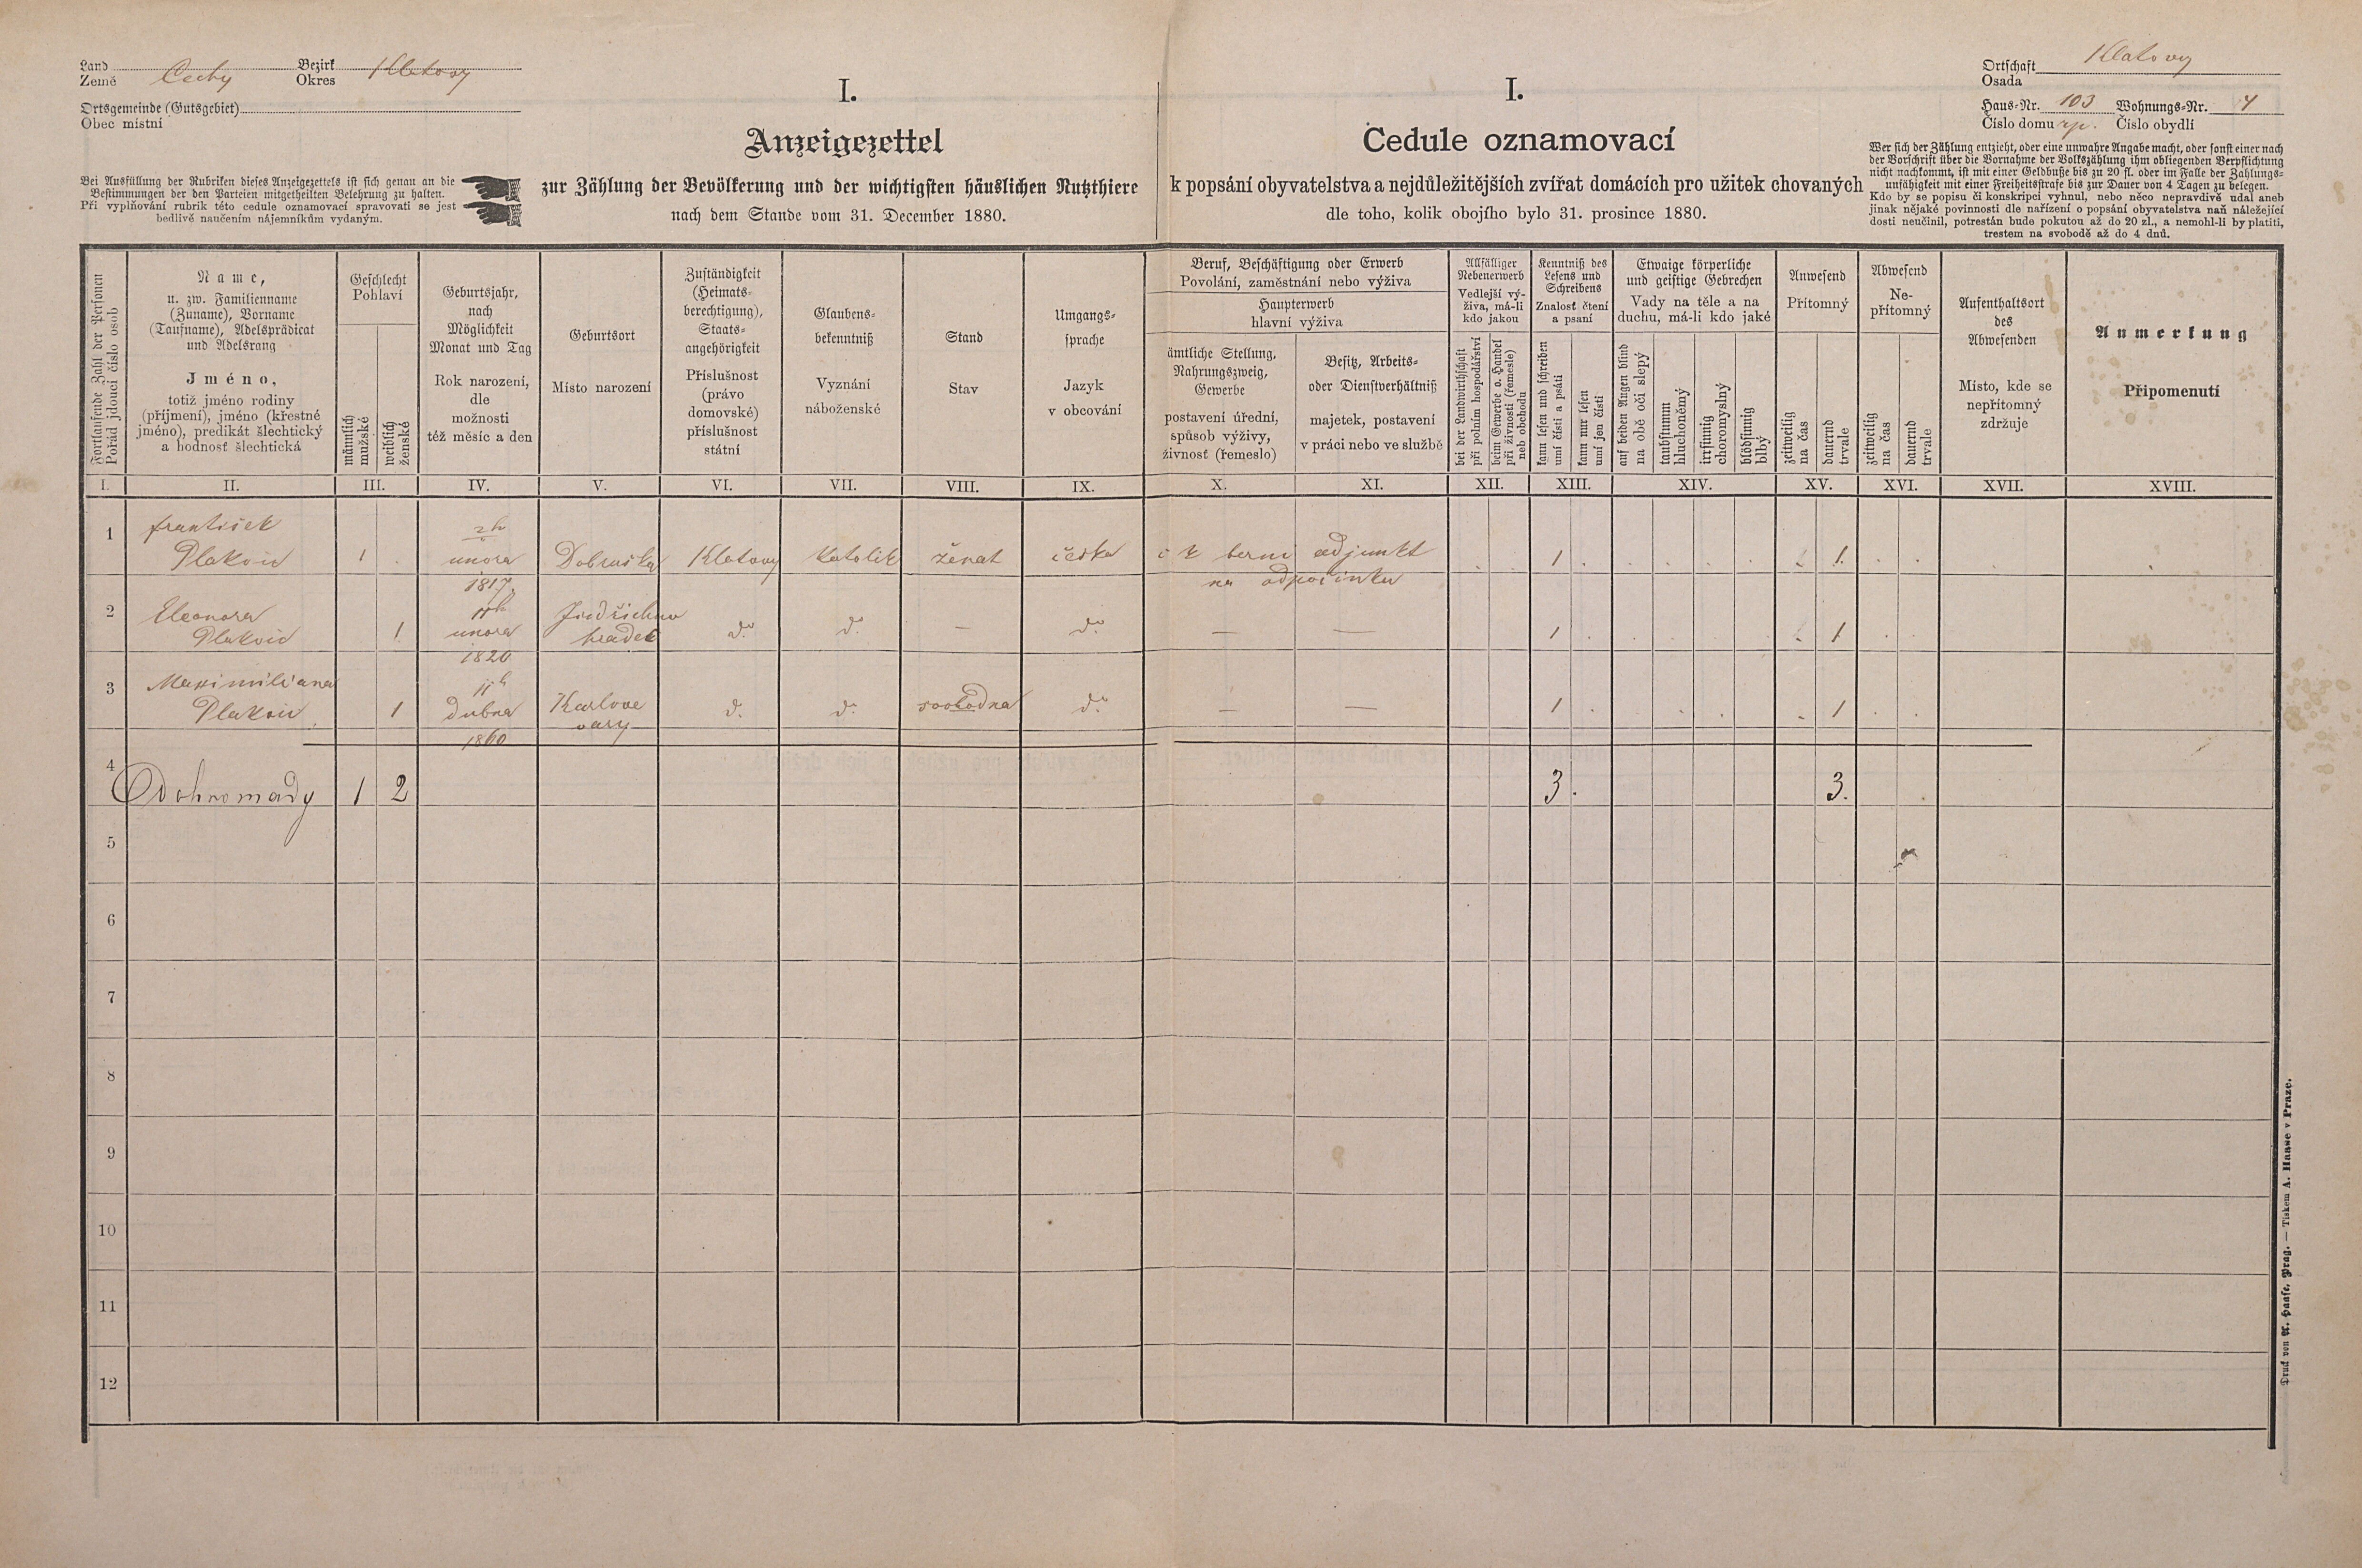 Land Bezirk
Země Čechy Okres Klatovy
Ortsgemeinde (Gutsgebiet)
Obec místní
Bei Ausfüllung der Rubriken dieses Anzeigezettels ist sich genau an die
Bestimmungen der den Parteien mitgetheilten Belehrung zu halten.
Při vyplňování rubrik této cedule oznamovací spravovati se jest
bedlivě naučením nájemníkům vydaným.
I.
Anzeigezettel
zur Zählung der Bevölkerung und der wichtigsten häuslichen Nutzthiere
nach dem Stande vom 31. December 1880.
I.
Cedule oznamovací
k popsání obyvatelstva a nejdůležitějších zvířat domácích pro užitek chovaných
dle toho, kolik obojího bylo 31. prosince 1880.
Ortschaft Klatovy
Osada
Haus-Nr. 103 Wohnungs-Nr. 4
Číslo domu čp. Číslo obydlí
Wer sich der Zählung entzieht, oder eine unwahre Angabe macht, oder sonst einer nach
der Vorschrift über die Vornahme der Volkszählung ihm obliegenden Verpflichtung
nicht nachkommt, ist mit einer Geldbuße bis zu 20 fl. oder im Falle der Zahlungs-
unfähigkeit mit einer Freiheitsstrafe bis zur Dauer von 4 Tagen zu belegen.
Kdo by se popisu či konskripci vyhnul, nebo něco nepravdivě udal aneb
jinak nějaké povinnosti dle nařízení o popsání obyvatelstva naň náležející
dosti neučinil, potrestán bude pokutou až do 20 zl., a nemohl-li by platiti,
trestem na svobodě až do 4 dnů.
Fortlaufende Zahl der Personen
Pořád jdoucí číslo osob
Name,
u. zw. Familienname
(Zuname), Vorname
(Taufname), Adelsprädicat
und Adelsrang
Jméno,
totiž jméno rodiny
(příjmení), jméno (křestné
jméno), predikát šlechtický
a hodnost šlechtická
Geschlecht
Pohlaví
männlich
mužské
weiblich
ženské
Geburtsjahr,
nach
Möglichkeit
Monat und Tag
Rok narození,
dle
možnosti
též měsíc a den
Geburtsort
Místo narození
Zuständigkeit
(Heimats-
berechtigung),
Staats-
angehörigkeit
Příslušnost
(právo
domovské)
příslušnost
státní
Glaubens-
bekenntniß
Vyznání
náboženské
Stand
Stav
Umgangs-
sprache
Jazyk
v obcování
Beruf, Beschäftigung oder Erwerb
Povolání, zaměstnání nebo výživa
Haupterwerb
hlavní výživa
ämtliche Stellung,
Nahrungszweig,
Gewerbe
postavení úřední,
spůsob výživy,
živnost (řemeslo)
Besitz, Arbeits-
oder Dienstverhältniß
majetek, postavení
v práci nebo ve službě
Allfälliger
Nebenerwerb
Vedlejší vý-
živa, má-li
kdo jakou
bei der Landwirthschaft
při polním hospodářství
beim Gewerbe o. Handel
při živnosti (řemesle)
neb obchodu
Kenntniß des
Lesens und
Schreibens
Znalost čtení
a psaní
kann lesen und schreiben
umí čísti a psáti
kann nur lesen
umí jen čísti
Etwaige körperliche
und geistige Gebrechen
Vady na těle a na
duchu, má-li kdo jaké
auf beiden Augen blind
na obě oči slepý
taubstumm
hluchoněmý
irrsinnig
choromyslný
blödsinnig
blbý
Anwesend
Přítomný
zeitweilig
na čas
dauernd
trvale
Abwesend
Ne-
přítomný
zeitweilig
na čas
dauernd
trvale
Aufenthaltsort
des
Abwesenden
Místo, kde se
nepřítomný
zdržuje
Anmerkung
Připomenutí
I. II. III. IV. V. VI. VII. VIII. IX. X. XI. XII. XIII. XIV. XV. XVI. XVII. XVIII.
1 František
1 . února Dobruška Klatovy katolík ženat česka c k berni adjunkt 1 1
1817 na odpočinku
2 Eleonora 11ho Jindřichuv
1 února hradec do do — do — — 1 1
1820
3 Maximiliana 11ho
1 dubna Karlove vary do do svobodna do — — 1 1
1860
4
Dohromady 1 2 3. 3.
5
6
7
8
9
10
11
12
Druck von A. Haase, Prag. — Tiskem A. Haase v Praze.